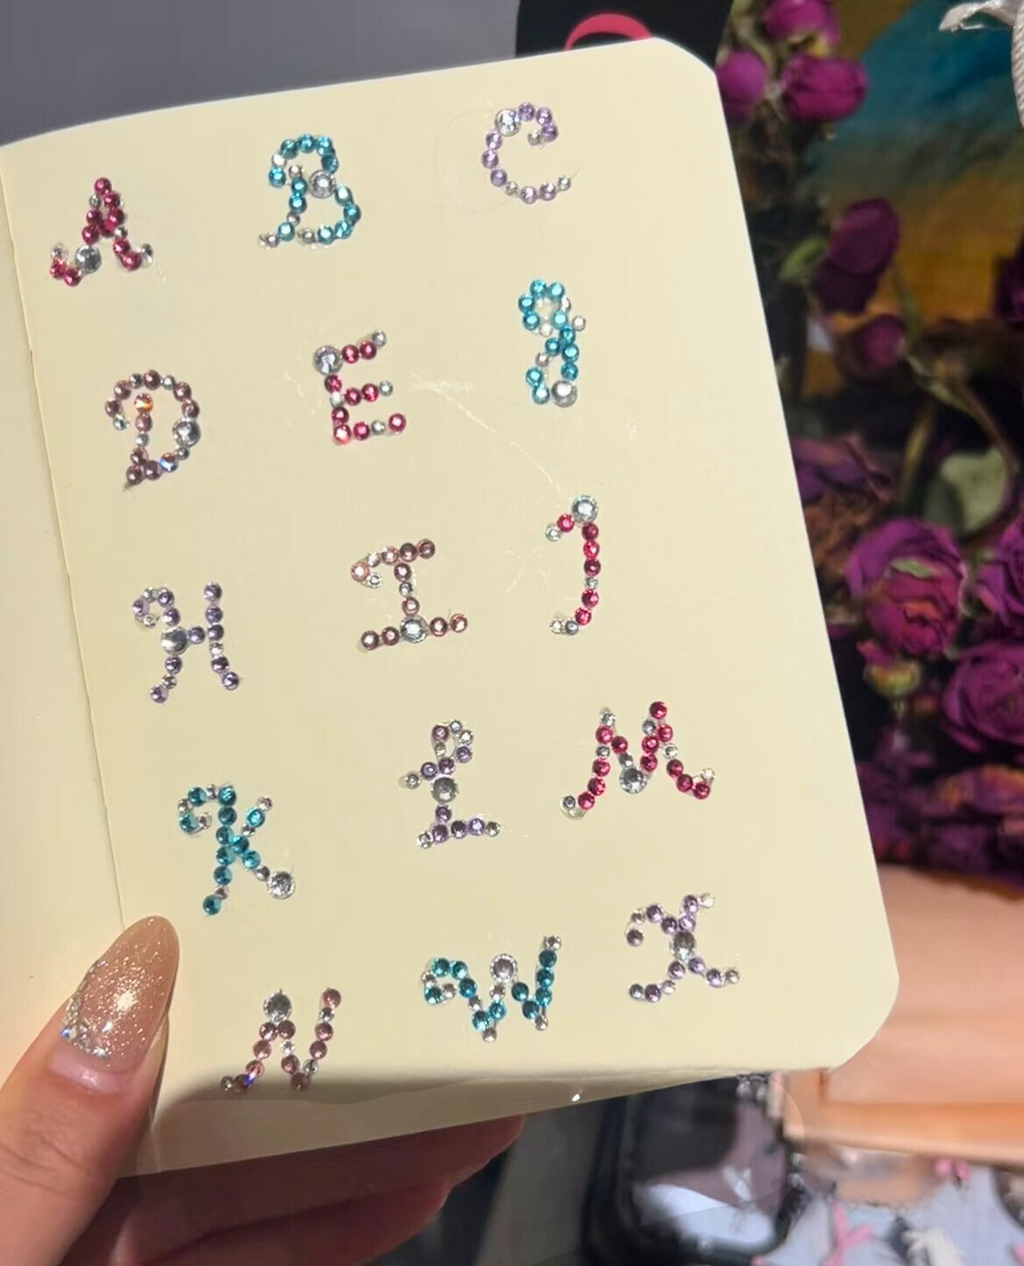 A B C
D E G
H I J
K L M
N W X